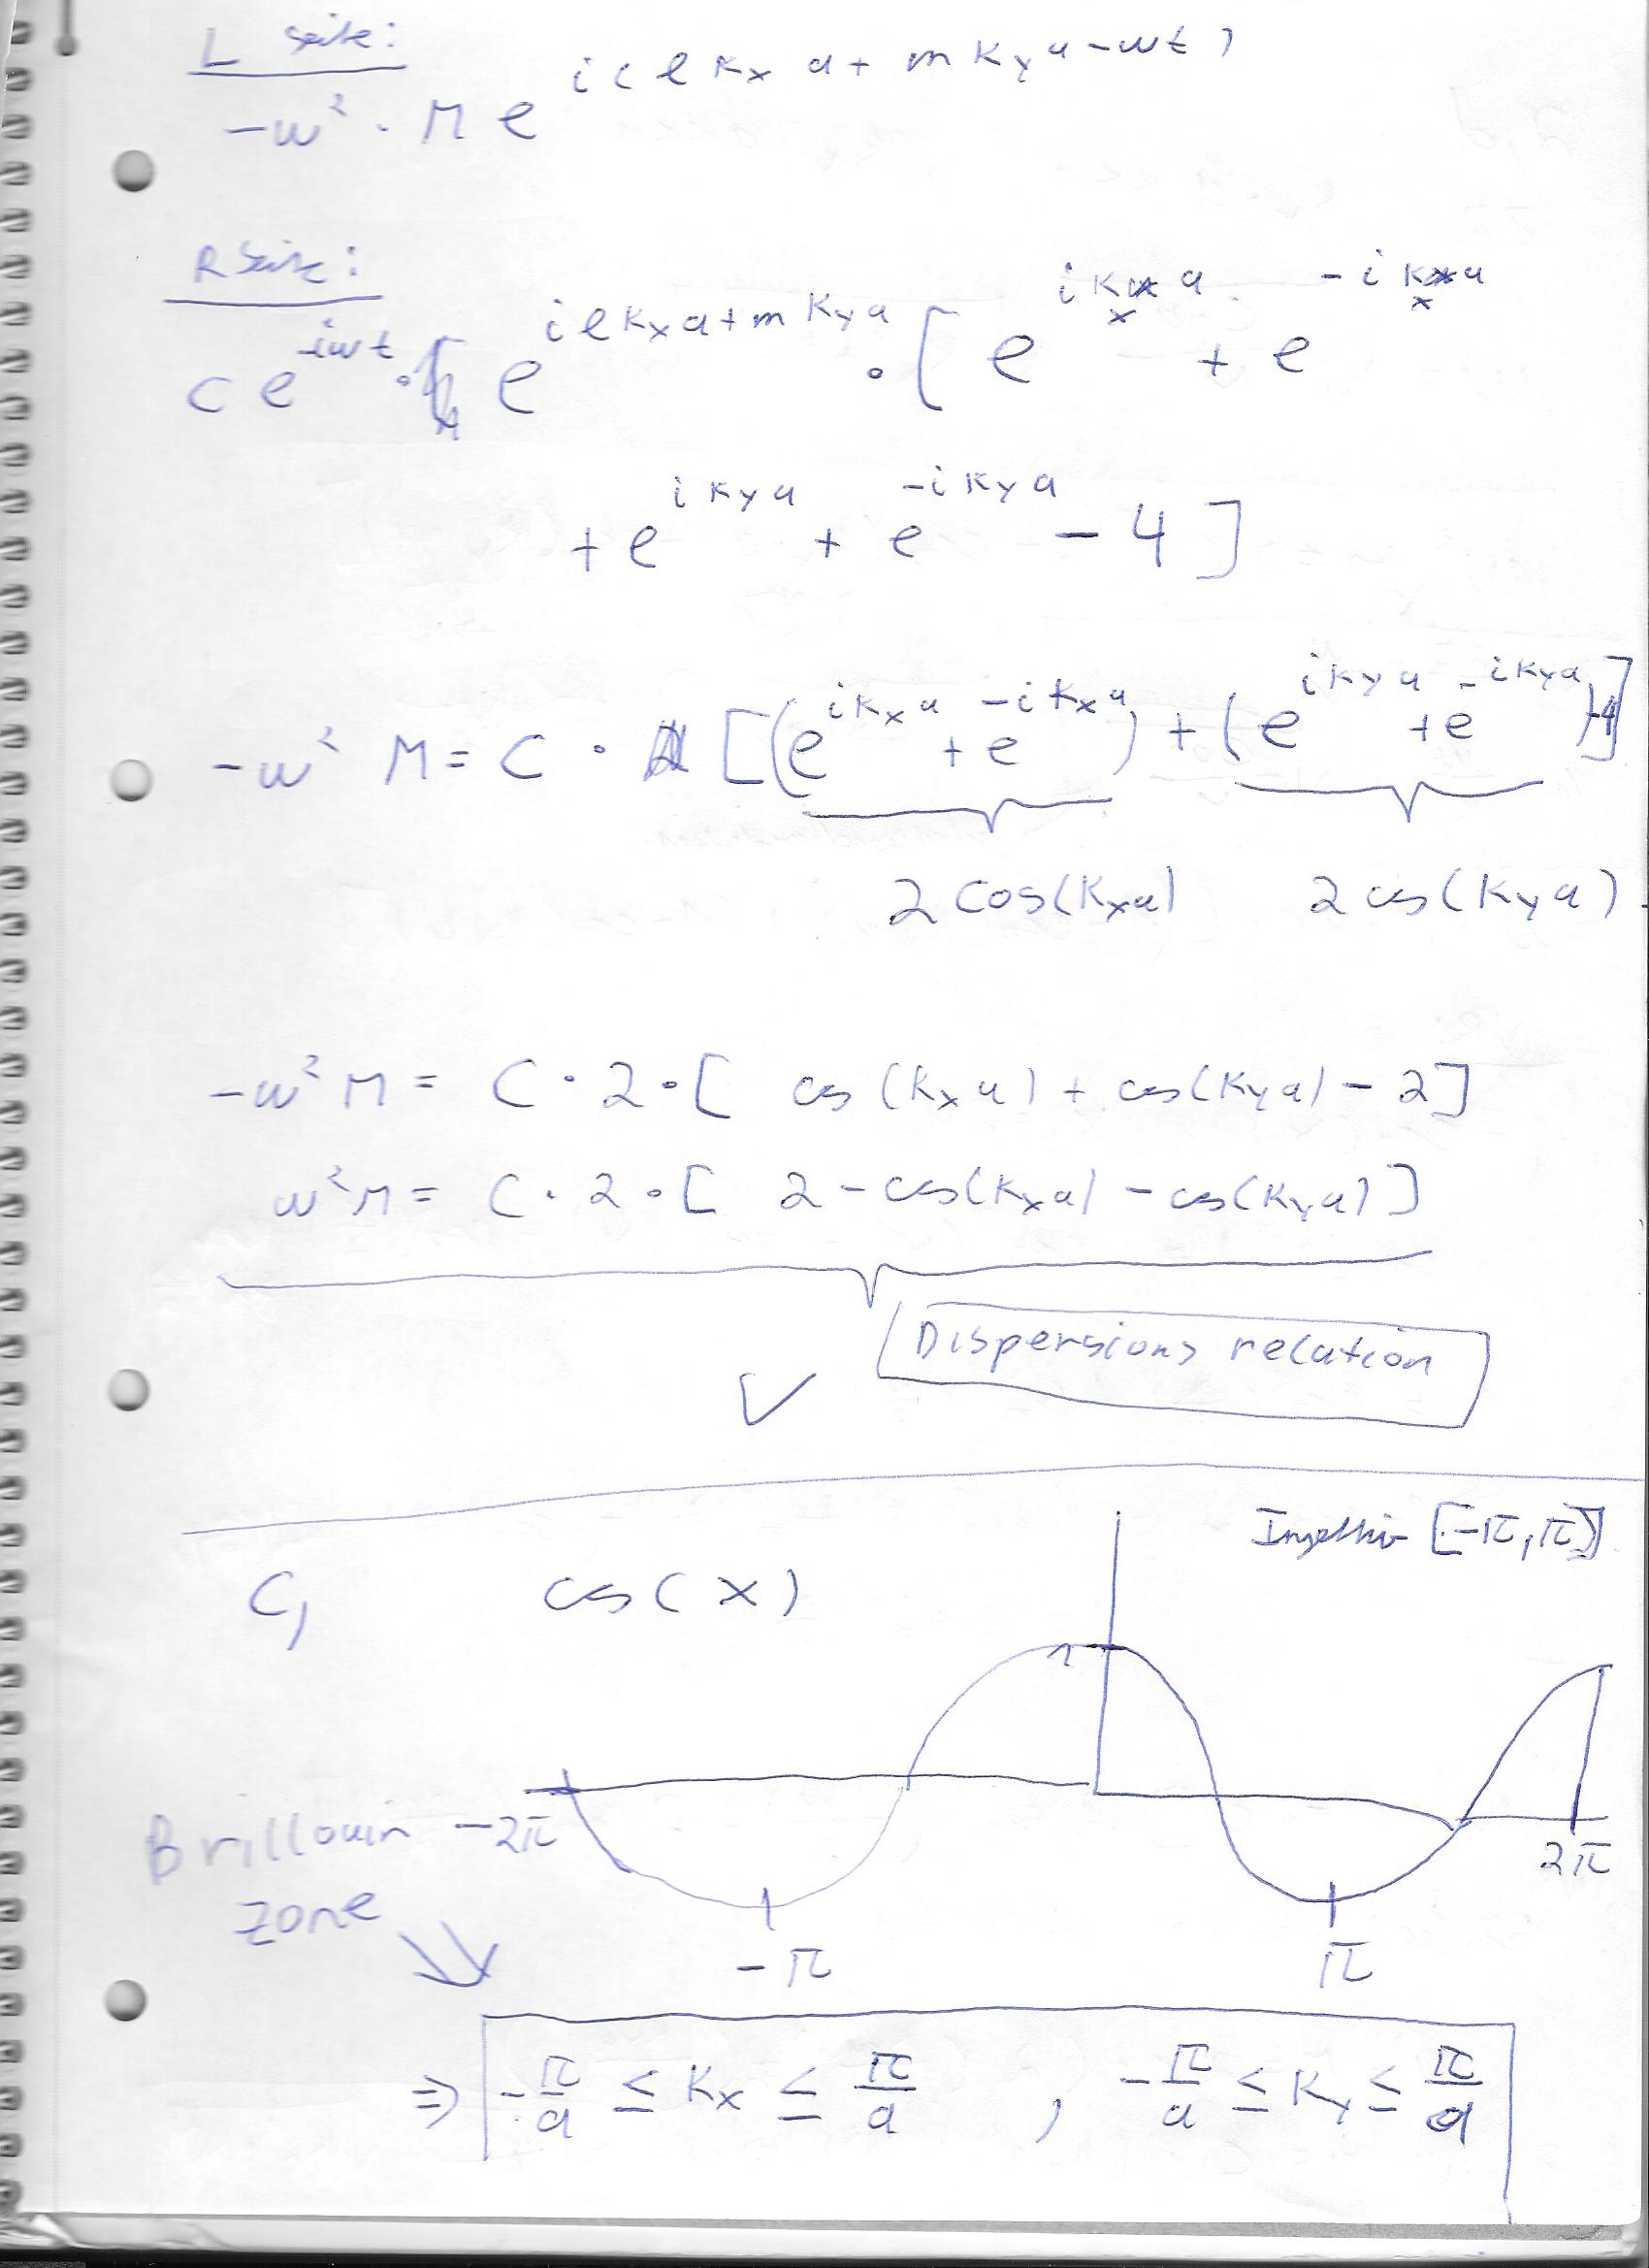 L Seite:
-ω² · M e^{i(lKx a + mKy a - ωt)}
R Seite:
c e^{-iωt} · e^{ilKxa+mKya} · [ e^{iKxa} + e^{-iKxa}
+ e^{iKya} + e^{-iKya} - 4 ]
-ω² M = C · [(e^{iKxa} + e^{-iKxa}) + (e^{iKya} + e^{-iKya}) -4]
2 cos(Kxa) 2 cos(Kya)
-ω² M = C · 2 · [ cos(Kxa) + cos(Kya) - 2 ]
ω² M = C · 2 · [ 2 - cos(Kxa) - cos(Kya) ]
Dispersions relation
✓
[-π, π]
C, cos(x)
1
Brillouin -2π
2π
zone
-π π
⇒ -π/a ≤ Kx ≤ π/a , -π/a ≤ Ky ≤ π/a